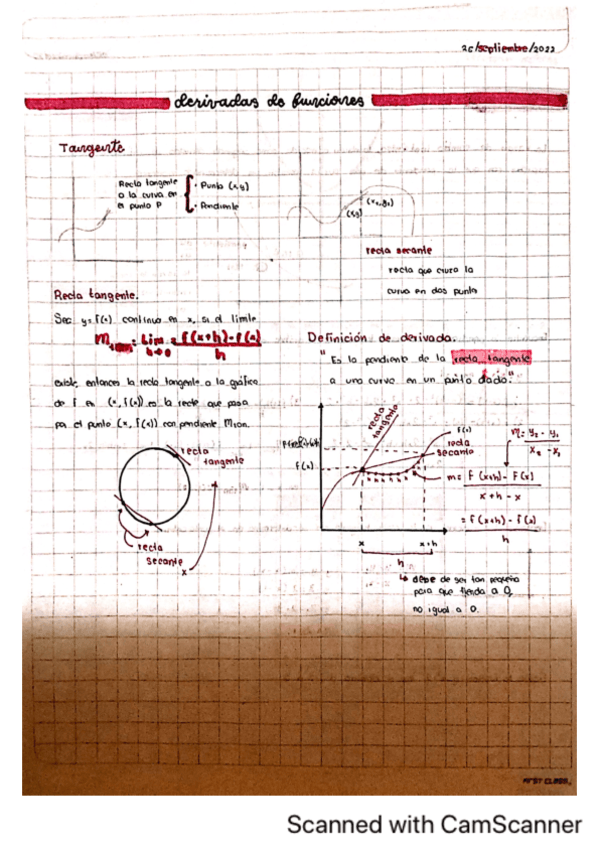 26/septiembre/2022
derivadas de funciones
Tangente
Recta tangente
a la curva en
el punto P
• Punto (x,y)
• Pendiente
(x,y)
(x₂,y₂)
recta secante
recta que cruza la
curva en dos punto
Recta tangente.
Sea y=f(x) continua en x, si el límite
= Lim = f(x+h)-f(x)
h→0 h
existe, entonces la recta tangente a la gráfica
de f en (x, f(x)) es la recta que pasa
por el punto (x, f(x)) con pendiente Mtan.
recta
tangente
recta
secante
x
Definición de derivada.
"Es la pendiente de la recta tangente
a una curva en un punto dado."
recta
tangente
f(x)
recta
secante
f(x)
m = y₂ - y₁
x₂ - x₁
m = f(x+h) - f(x)
x+h-x
= f(x+h) - f(x)
h
x x+h
h
↳ debe de ser tan pequeño
para que tienda a 0,
no igual a 0.
FIRST CLASS.
Scanned with CamScanner